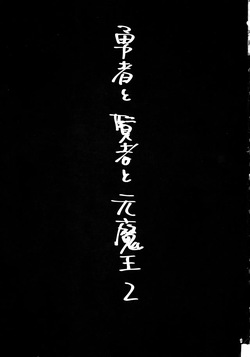 勇者と賢者と元魔王2